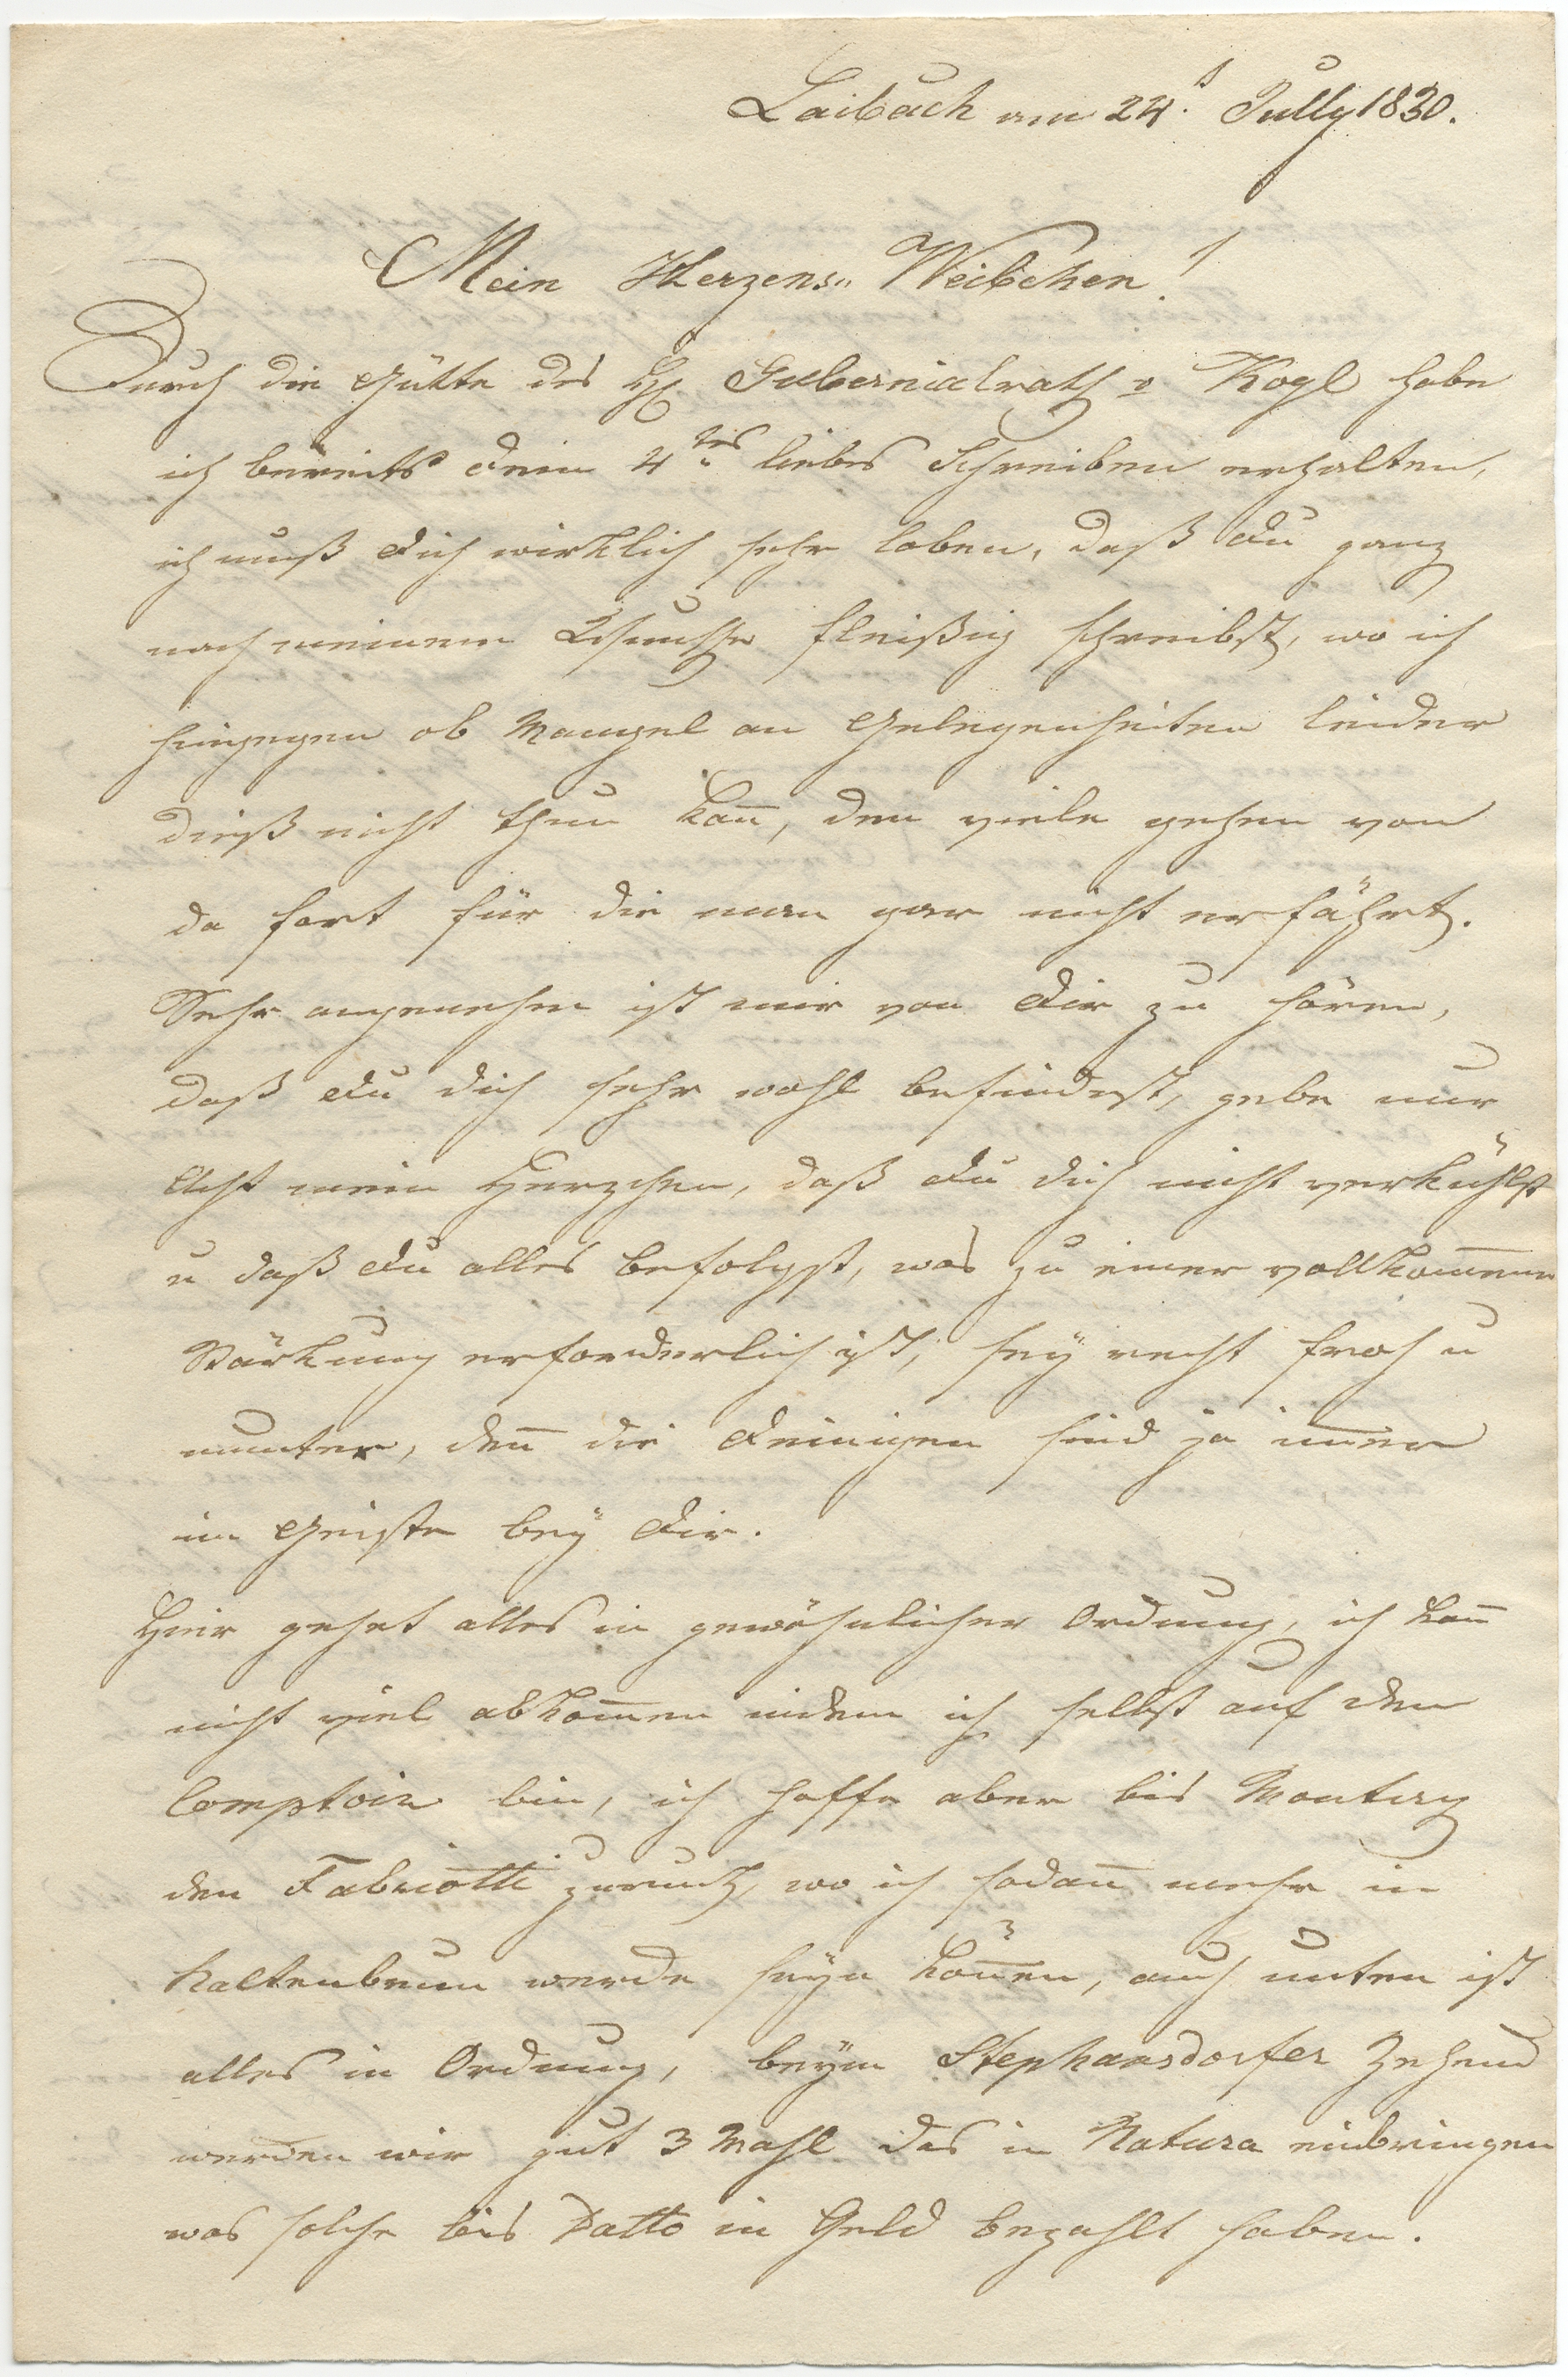 Laibach am 24.t Jully 1830.
Mein Herzens„ Weibchen!
Durch die Gütte des H. Gubernialrath v Kogl habe
ich bereits dein 4tes liebes Schreiben erhalten,
ich muß dich wirklich sehr loben, daß du ganz
nach meinem Wunsche fleißig schreibst, wo ich
hingegen ob Mangel an Gelegenheiten leider
dieß nicht thun kan̅, den viele gehen von
da fort für die man gar nicht erfährt.
Sehr angenehm ist mir von dir zu hören,
daß du dich sehr wohl befindest, gebe nur
Acht mein Herzchen, daß du dich nicht verkühlst
u daß du alles befolgst, was zu einer vollkom̅enen
Stärkung erforderlich ist, seÿ recht froh u
munter, den̅ die deinigen sind ja im̅er
im Geiste beÿ dir.
Hier gehet alles in gewöhnlicher Ordnung, ich kan̅
nicht viel abkom̅en indem ich selbst auf dem
Comptoir bin, ich hoffe aber bis Montag
den Fabriotti zurück, wo ich sodan̅ mehr in
Kaltenbrun werde seÿn kön̅en, auch unten ist
alles in Ordnung, beÿm Stephansdorfer Zehend
werden wir gut 3 Mahl das in Natura einbringen
was solche bis Datto in Geld bezahlt haben.